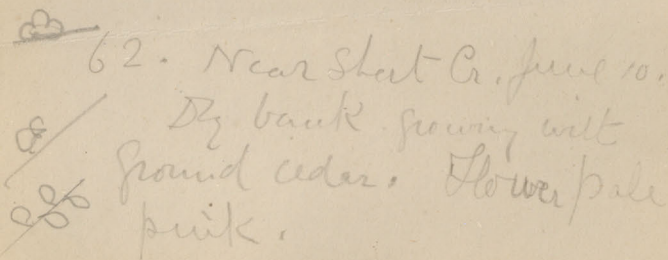 62. Near Short Cr. June 10.
Dry bank growing with
ground cedar. Flower pale
pink.